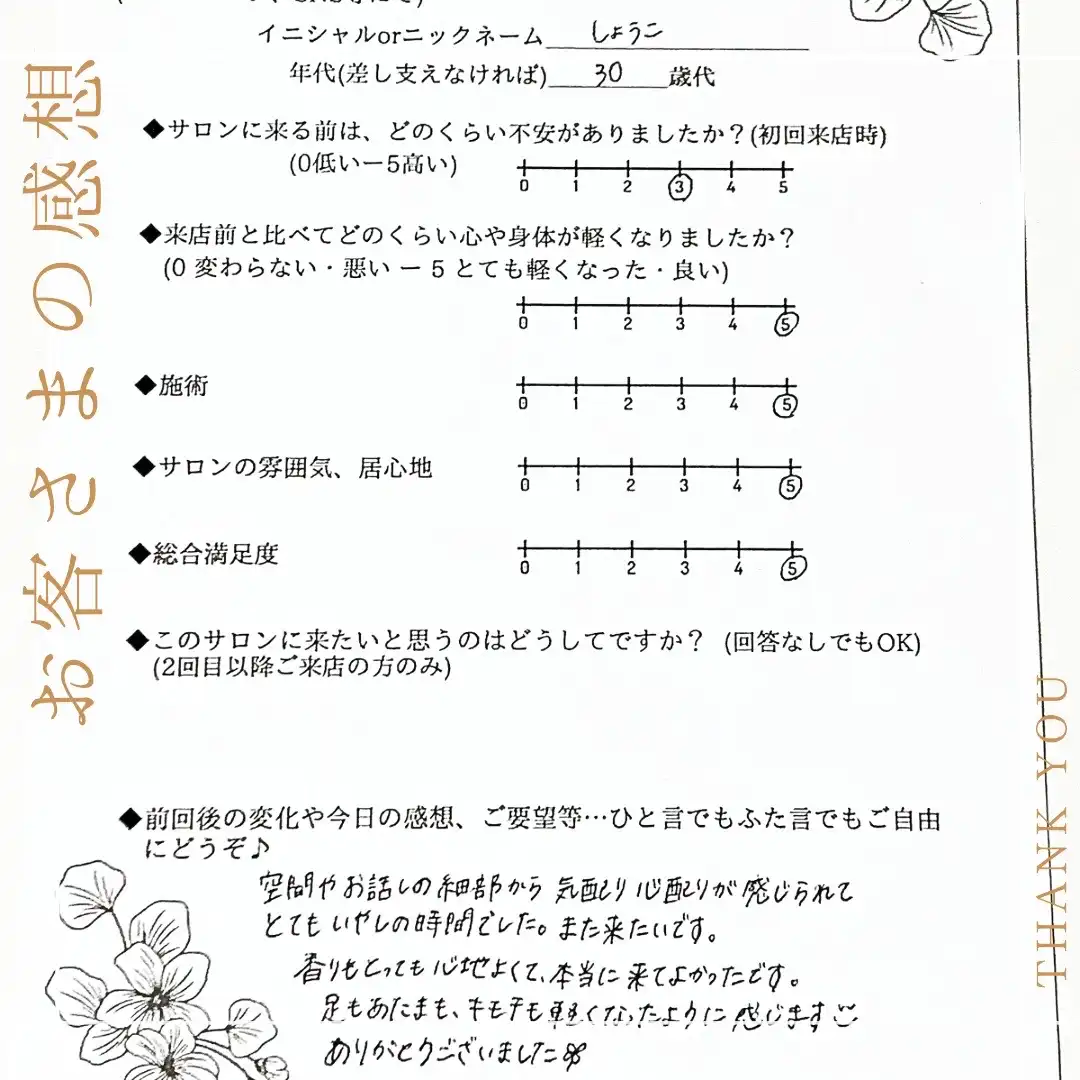 お客さまの感想
イニシャルorニックネーム しょうこ
年代(差し支えなければ) 30 歳代
◆サロンに来る前は、どのくらい不安がありましたか？(初回来店時)
(0低いー5高い)
0 1 2 3 4 5
◆来店前と比べてどのくらい心や身体が軽くなりましたか？
(0 変わらない・悪い ー 5 とても軽くなった・良い)
0 1 2 3 4 5
◆施術
0 1 2 3 4 5
◆サロンの雰囲気、居心地
0 1 2 3 4 5
◆総合満足度
0 1 2 3 4 5
◆このサロンに来たいと思うのはどうしてですか？ (回答なしでもOK)
(2回目以降ご来店の方のみ)
◆前回後の変化や今日の感想、ご要望等…ひと言でもふた言でもご自由
にどうぞ♪
空間やお話しの細部から 気配り心配りが感じられて
とてもいやしの時間でした。また来たいです。
香りもとっても心地よくて、本当に来てよかったです。
足もあたまも、キモチも軽くなったように感じます
ありがとうございました
THANK YOU